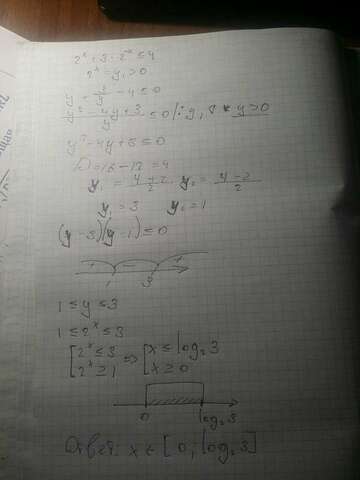 2^x + 3 · 2^-x ≤ 4
2^x = y, > 0
y + 3/y - 4 ≤ 0
(y² - 4y + 3)/y ≤ 0 | · y, y > 0
y² - 4y + 3 ≤ 0
D = 16 - 12 = 4
y₁ = (4+2)/2 y₂ = (4-2)/2
y₁ = 3 y₂ = 1
(y - 3)(y - 1) ≤ 0
+ - +
1 3
1 ≤ y ≤ 3
1 ≤ 2^x ≤ 3
[ 2^x ≤ 3 => [ x ≤ log₂ 3
2^x ≥ 1 x ≥ 0
0 log₂ 3
Ответ: x ∈ [0; log₂ 3]